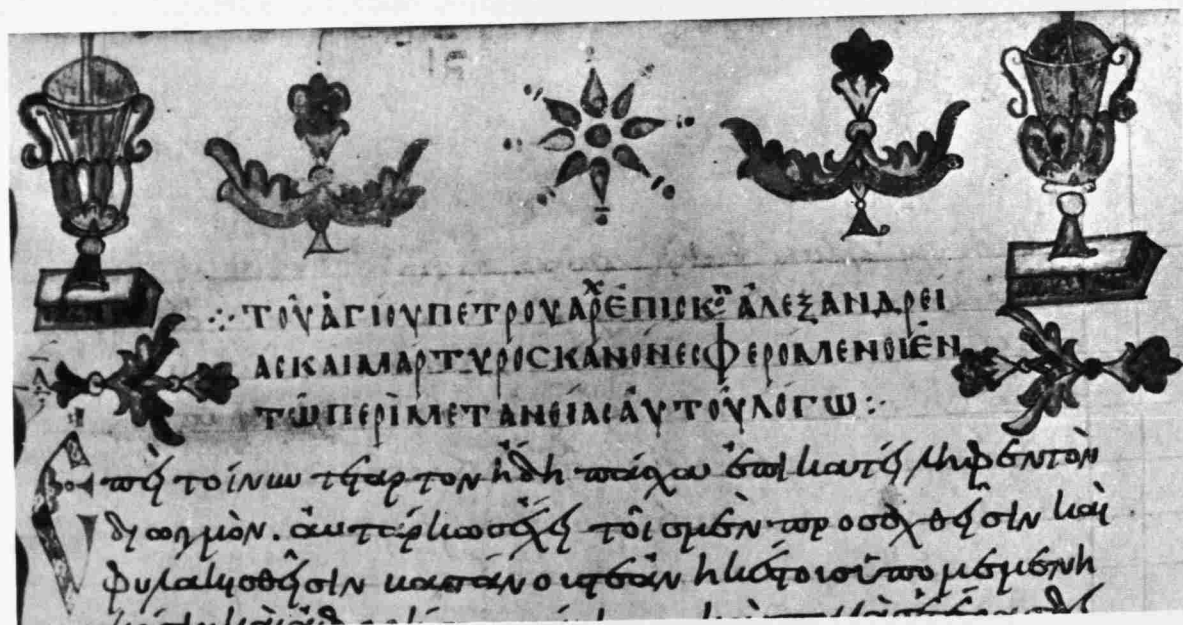 ∴ ΤΟΥ ἉΓΙΟΥ ΠΕΤΡΟΥ ἈΡΧ ἘΠΙΣΚΟΠ ἈΛΕΞΑΝΔΡΕΙ
ΑΣ ΚΑΙ ΜΑΡΤΥΡΟΣ ΚΑΝΟΝΕΣ ΦΕΡΟΜΕΝΟΙ ἘΝ
ΤΩ ΠΕΡῚ ΜΕΤΑΝΟΙΑΣ ἈΥΤΟΥ ΛΟΓΩ :·
Ἐπεὶ τοίνυν τέταρτον ἤδη πάσχα ἐπικατείληφεν τὸν
διωγμὸν. ἀυτάρκως ἔχει τοῖς μὲν προσαχθεῖσιν καὶ
φυλακισθεῖσιν βασάνους τε ἀνηκέστους ὑπομεμενη